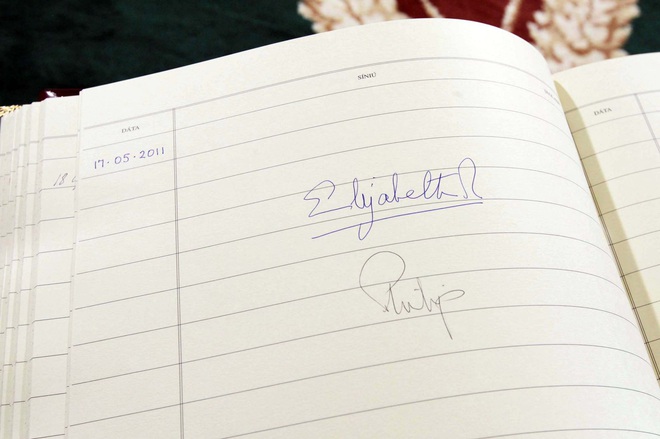 DÁTA SÍNIÚ
17·05·2011
Elizabeth R
Philip
DÁTA
18